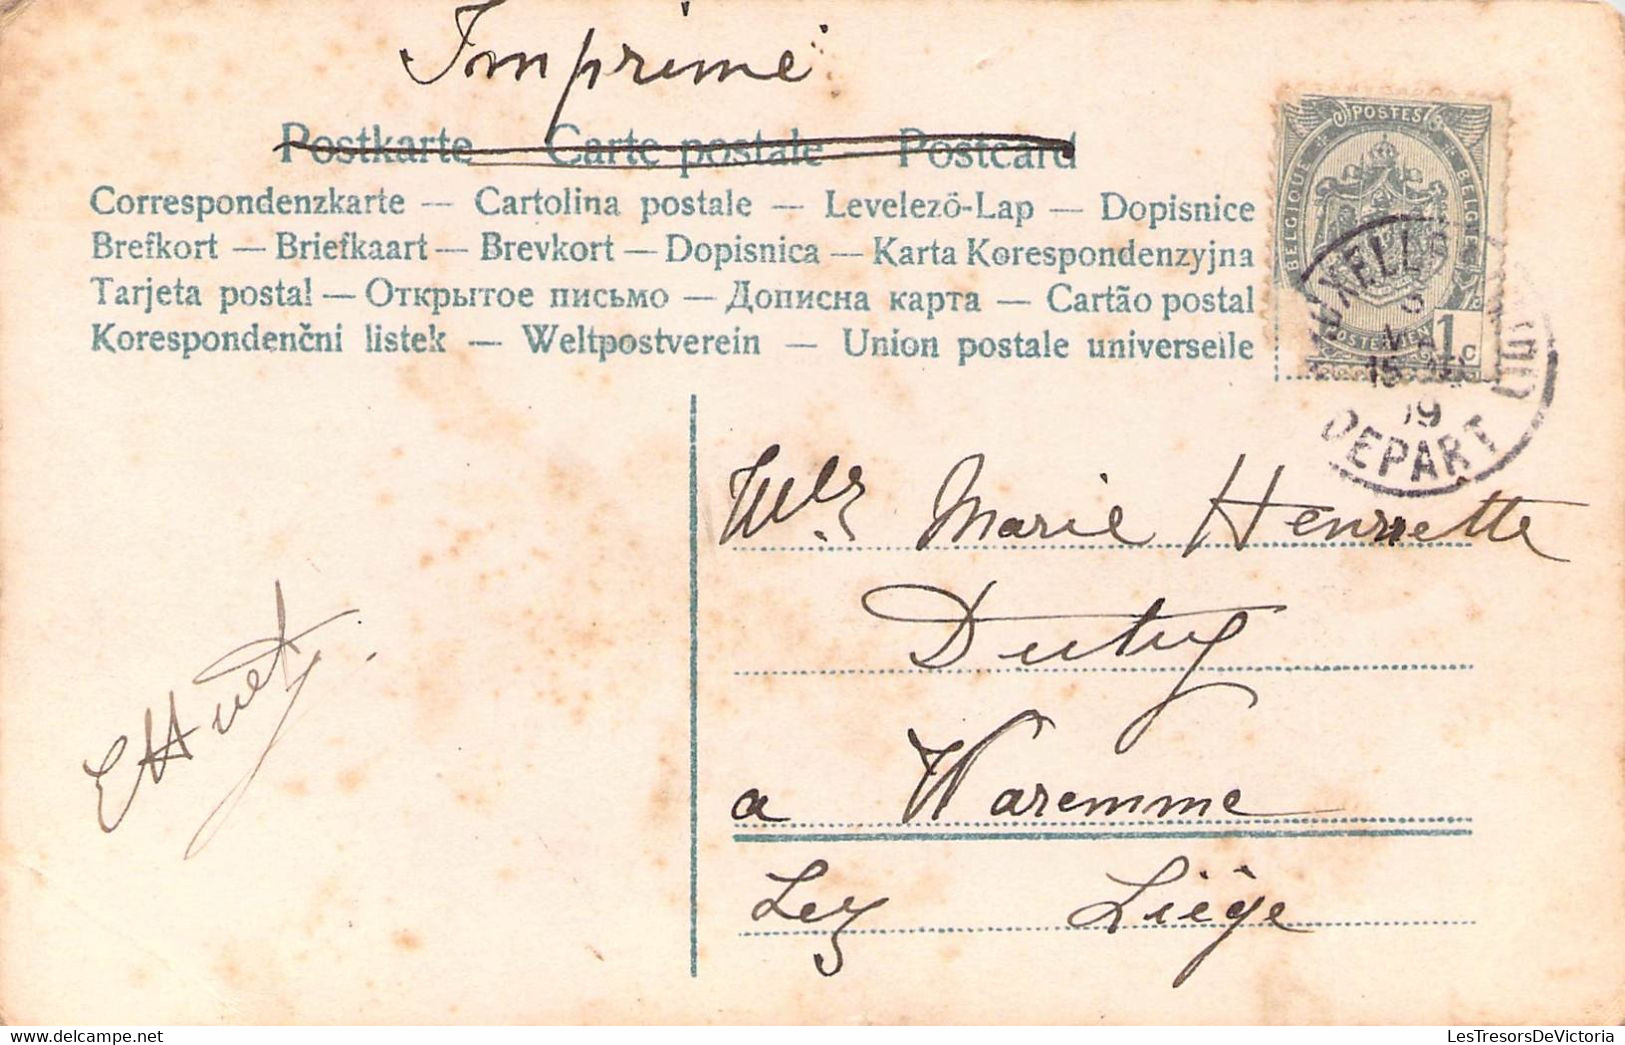 Imprimé
Postkarte Carte postale Postcard
Correspondenzkarte — Cartolina postale — Levelező-Lap — Dopisnice
Brefkort — Briefkaart — Brevkort — Dopisnica — Karta Korespondenzyjna
Tarjeta postal — Открытое письмо — Дописна карта — Cartão postal
Korespondenčni listek — Weltpostverein — Union postale universelle
POSTES
BELGIQUE
BELGIË
POSTERIJEN
1c
DEPART
Marie Henriette
a Waremme
Lez Liége
E Huet
LesTresorsDeVictoria